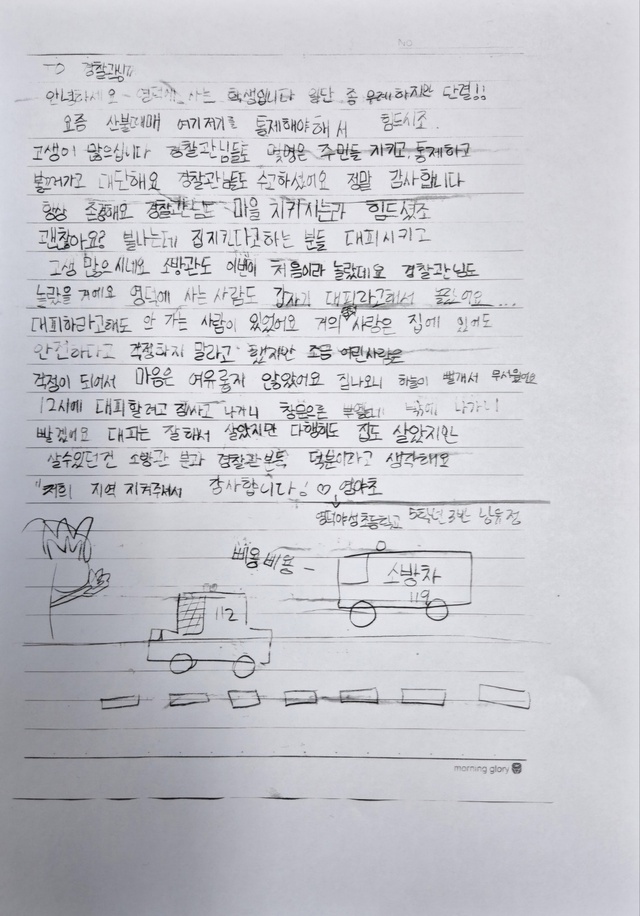 No.
To 경찰관님께
안녕하세요 영덕에 사는 학생입니다 일단 좀 무례하지만 단결!!
요즘 산불때매 여기저기를 통제해야해서 힘드시죠.
고생이 많으십니다 경찰관님들도 몇명은 주민들 지키고, 통제하고
불끄러가고 대단해요 경찰관님들도 수고하셨어요 정말 감사합니다
항상 존경해요 경찰관님도 마을 지키시는라 힘드셨죠
괜찮아요? 불나는데 집지킨다고하는 분들 대피시키고
고생 많으시네요 소방관도 이번이 처음이라 놀랐데요 경찰관님도
놀랐을 거에요 영덕에 사는 사람도 갑자기 대피하라고해서 ...
대피하라고해도 안 가는 사람이 있었어요 거의 사람은 집에 있어도
안전하다고 걱정하지 말라고 했지만 조금 어린사람은
걱정이 되어서 마음은 여유롭지 않았어요 집나오니 하늘이 빨개서 무서웠어요
12시에 대피할려고 짐싸고 나가니 창문으론 밖에 나가니
빨겠어요 대피는 잘해서 살았지만 다행히도 집도 살았지만
살수있던건 소방관 분과 경찰관분들 덕분이라고 생각해요
"저희 지역 지켜주셔서 감사합니다! ♡ 영야초
영덕야성초등학교 5학년 3반 남유정
삐용삐용
소방차
119
112
morning glory